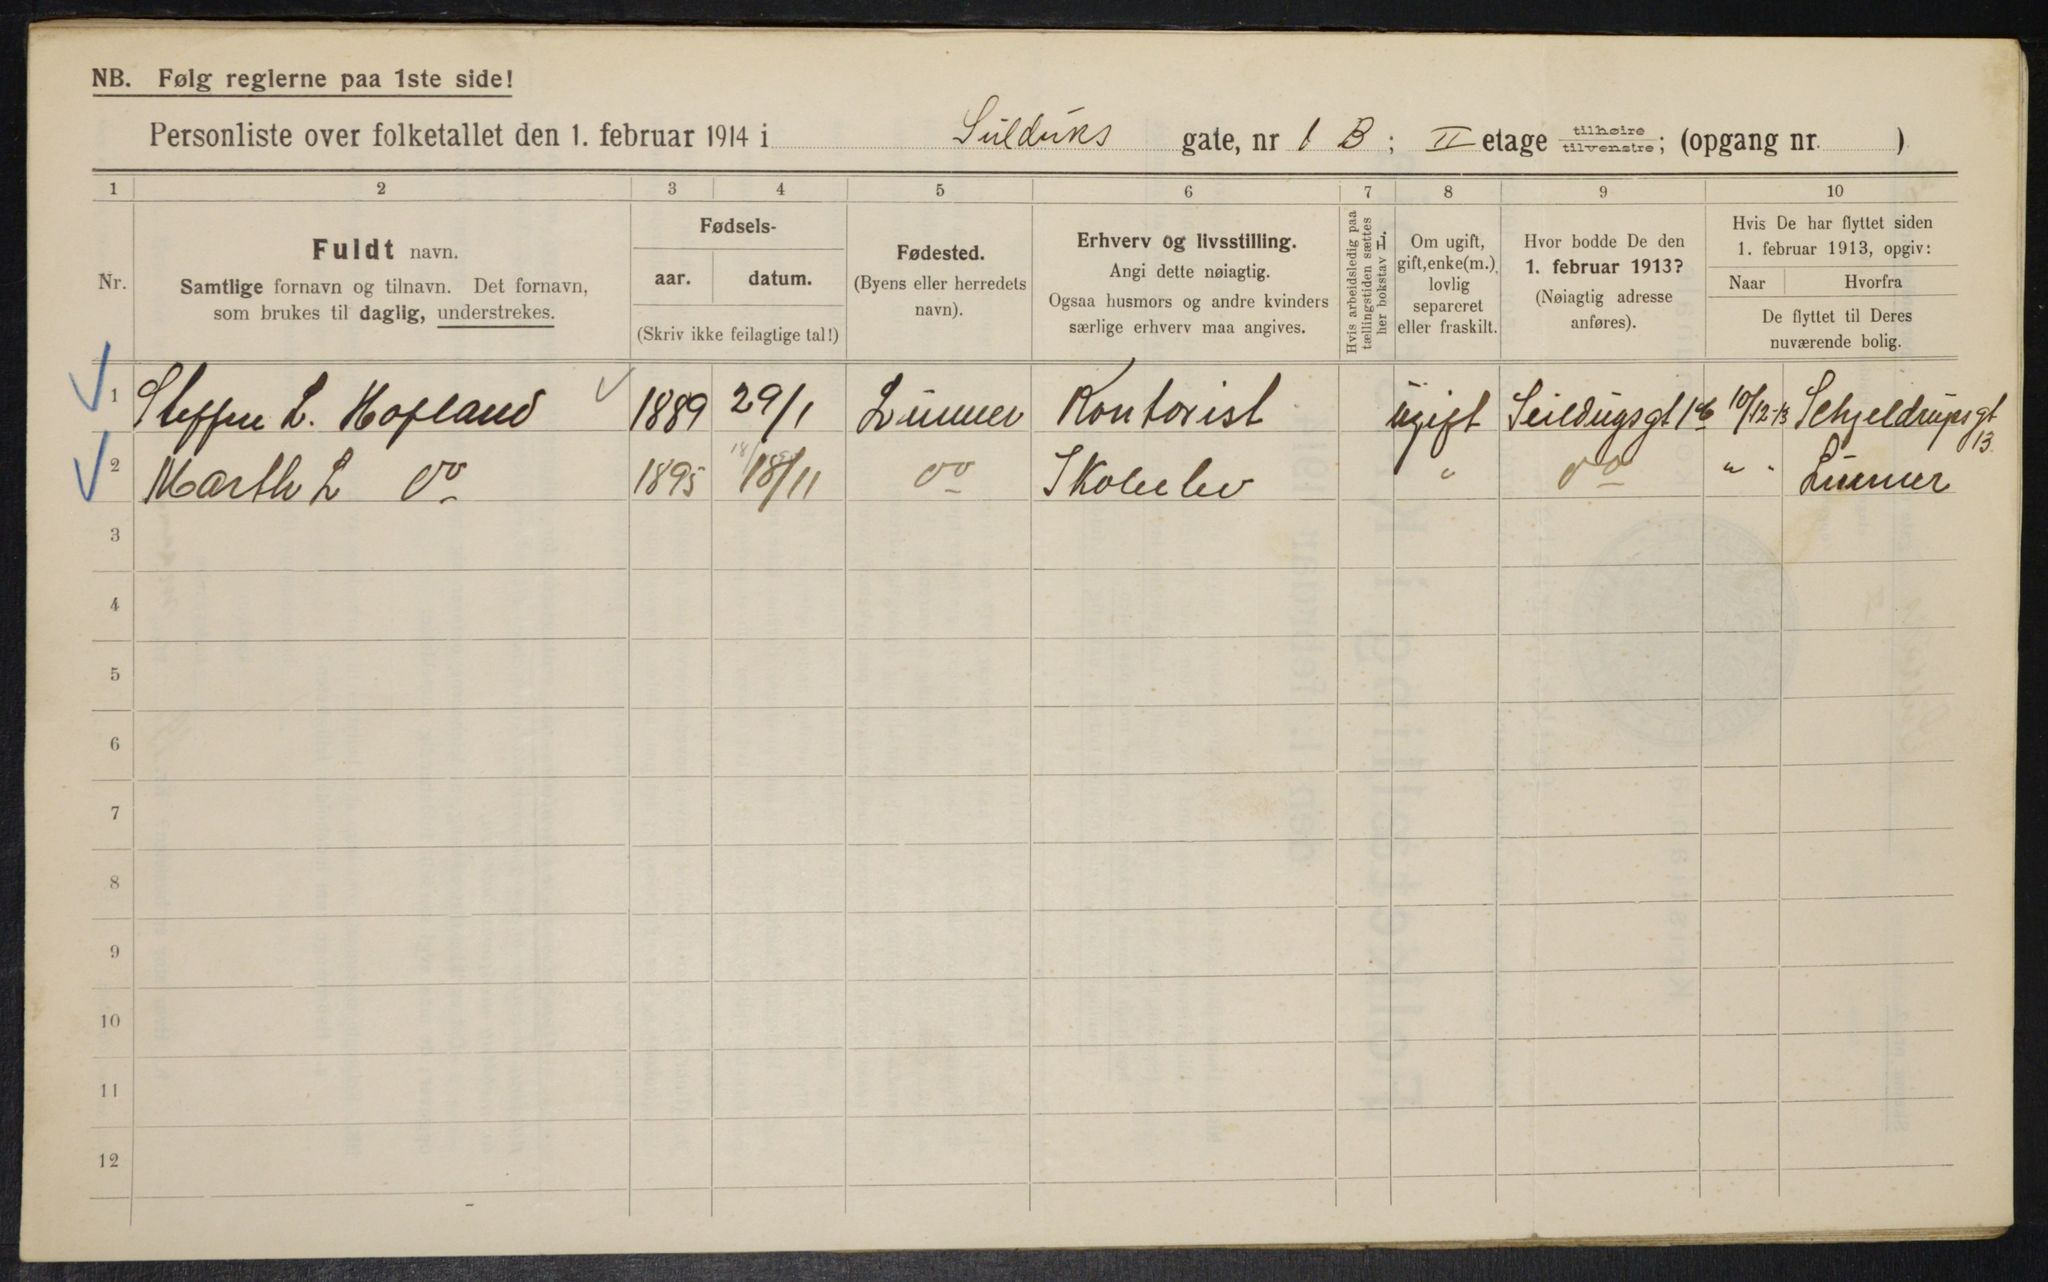 NB. Følg reglerne paa 1ste side!
Personliste over folketallet den 1. februar 1914 i Seilduks gate, nr 1 B; II etage tilhøire tilvenstre; (opgang nr. )
1 2 3 4 5 6 7 8 9 10
Nr.
Fuldt navn.
Samtlige fornavn og tilnavn. Det fornavn,
som brukes til daglig, understrekes.
Fødsels-
aar. datum.
(Skriv ikke feilagtige tal!)
Fødested.
(Byens eller herredets
navn).
Erhverv og livsstilling.
Angi dette nøiagtig.
Ogsaa husmors og andre kvinders
særlige erhverv maa angives.
Hvis arbeidsledig paa
tællingstiden sættes
her bokstav L.
Om ugift,
gift, enke(m.),
lovlig
separeret
eller fraskilt.
Hvor bodde De den
1. februar 1913?
(Nøiagtig adresse
anføres).
Hvis De har flyttet siden
1. februar 1913, opgiv:
Naar Hvorfra
De flyttet til Deres
nuværende bolig.
1 Steffen L. Hofland 1889 29/1 Lunner Kontorist ugift Seildugsgt 1b 10/12-13 Schjeldrupsgt 13
2 Marth L do 1895 18/11 do Skoleelev " do " " Lunner
3
4
5
6
7
8
9
10
11
12